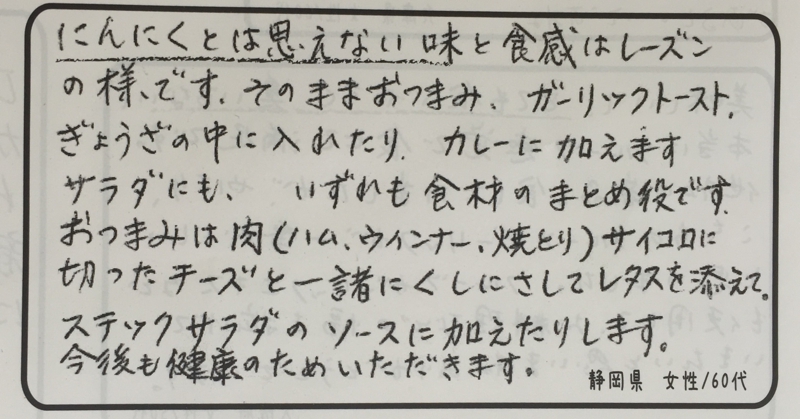 にんにくとは思えない味と食感はレーズン
の様です。そのままおつまみ、ガーリックトースト、
ぎょうざの中に入れたり、カレーに加えます
サラダにも、いずれも食材のまとめ役です。
おつまみは肉(ハム、ウインナー、焼とり)サイコロに
切ったチーズと一諸にくしにさしてレタスを添えて。
スティックサラダのソースに加えたりします。
今後も健康のためいただきます。
静岡県 女性/60代